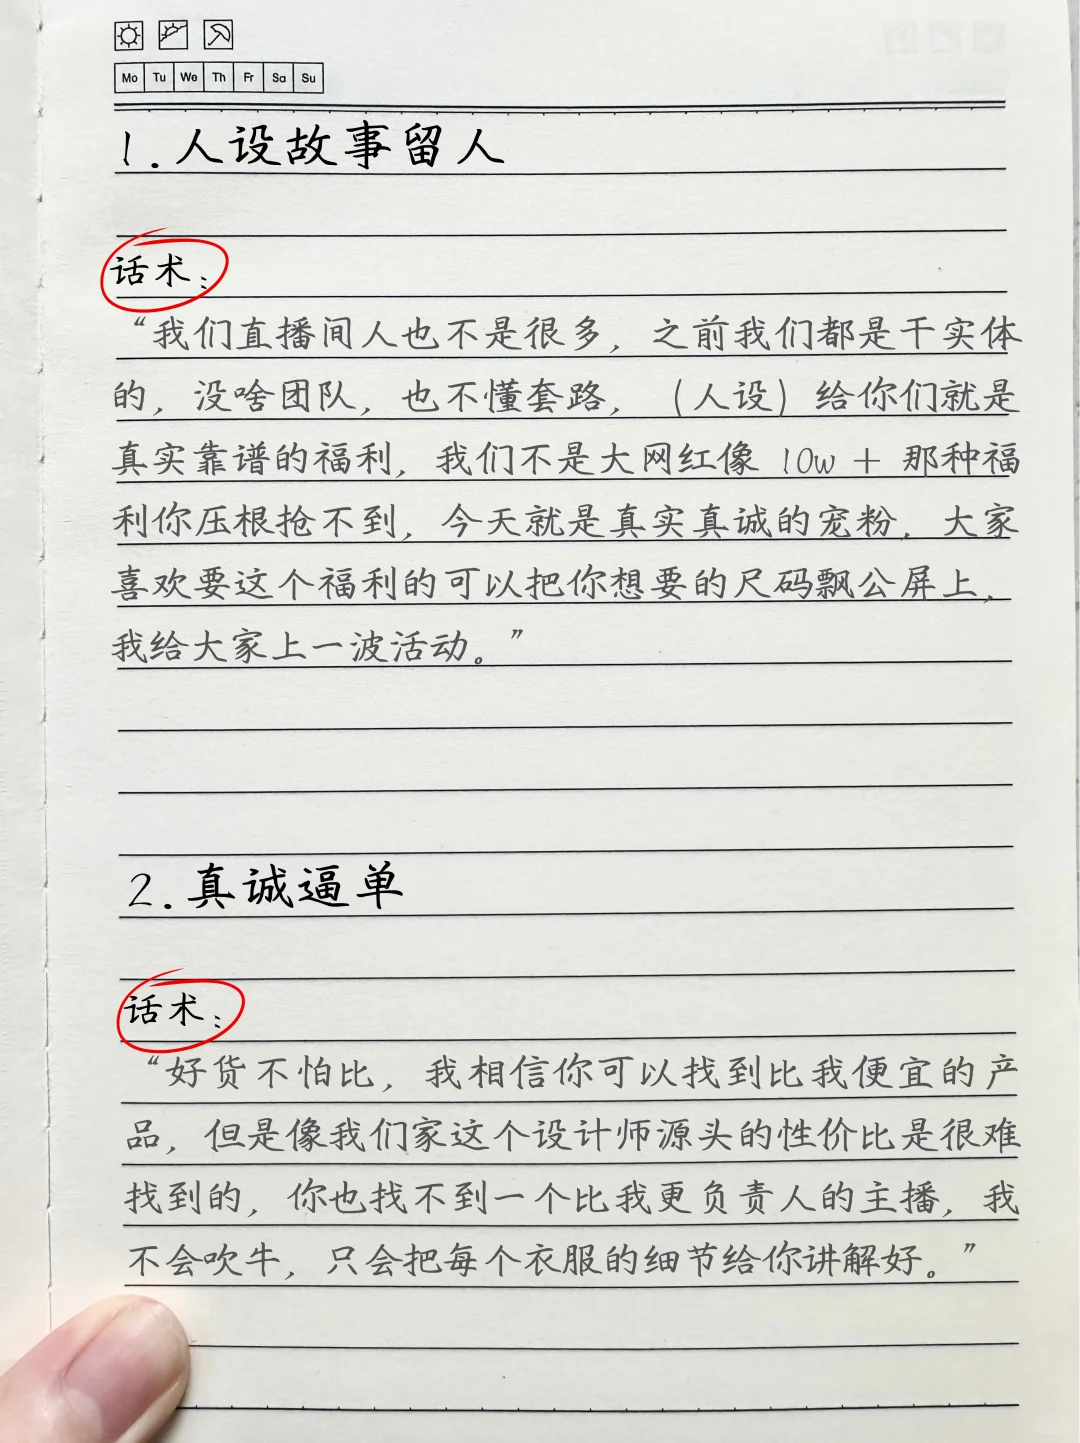 Mo Tu We Th Fr Sa Su
1.人设故事留人
话术：
“我们直播间人也不是很多，之前我们都是干实体
的，没啥团队，也不懂套路，（人设）给你们就是
真实靠谱的福利，我们不是大网红像 10w + 那种福
利你压根抢不到，今天就是真实真诚的宠粉，大家
喜欢要这个福利的可以把你想要的尺码飘公屏上，
我给大家上一波活动。”
2.真诚逼单
话术：
“好货不怕比，我相信你可以找到比我便宜的产
品，但是像我们家这个设计师源头的性价比是很难
找到的，你也找不到一个比我更负责人的主播，我
不会吹牛，只会把每个衣服的细节给你讲解好。”